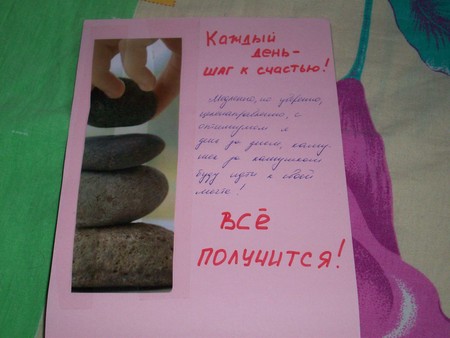 Каждый
день-
шаг к счастью!
Медленно, но уверенно,
целенаправленно, с
оптимизмом я
день за днём, камушек
за камушком
буду идти к своей
мечте!
ВСЁ
ПОЛУЧИТСЯ!